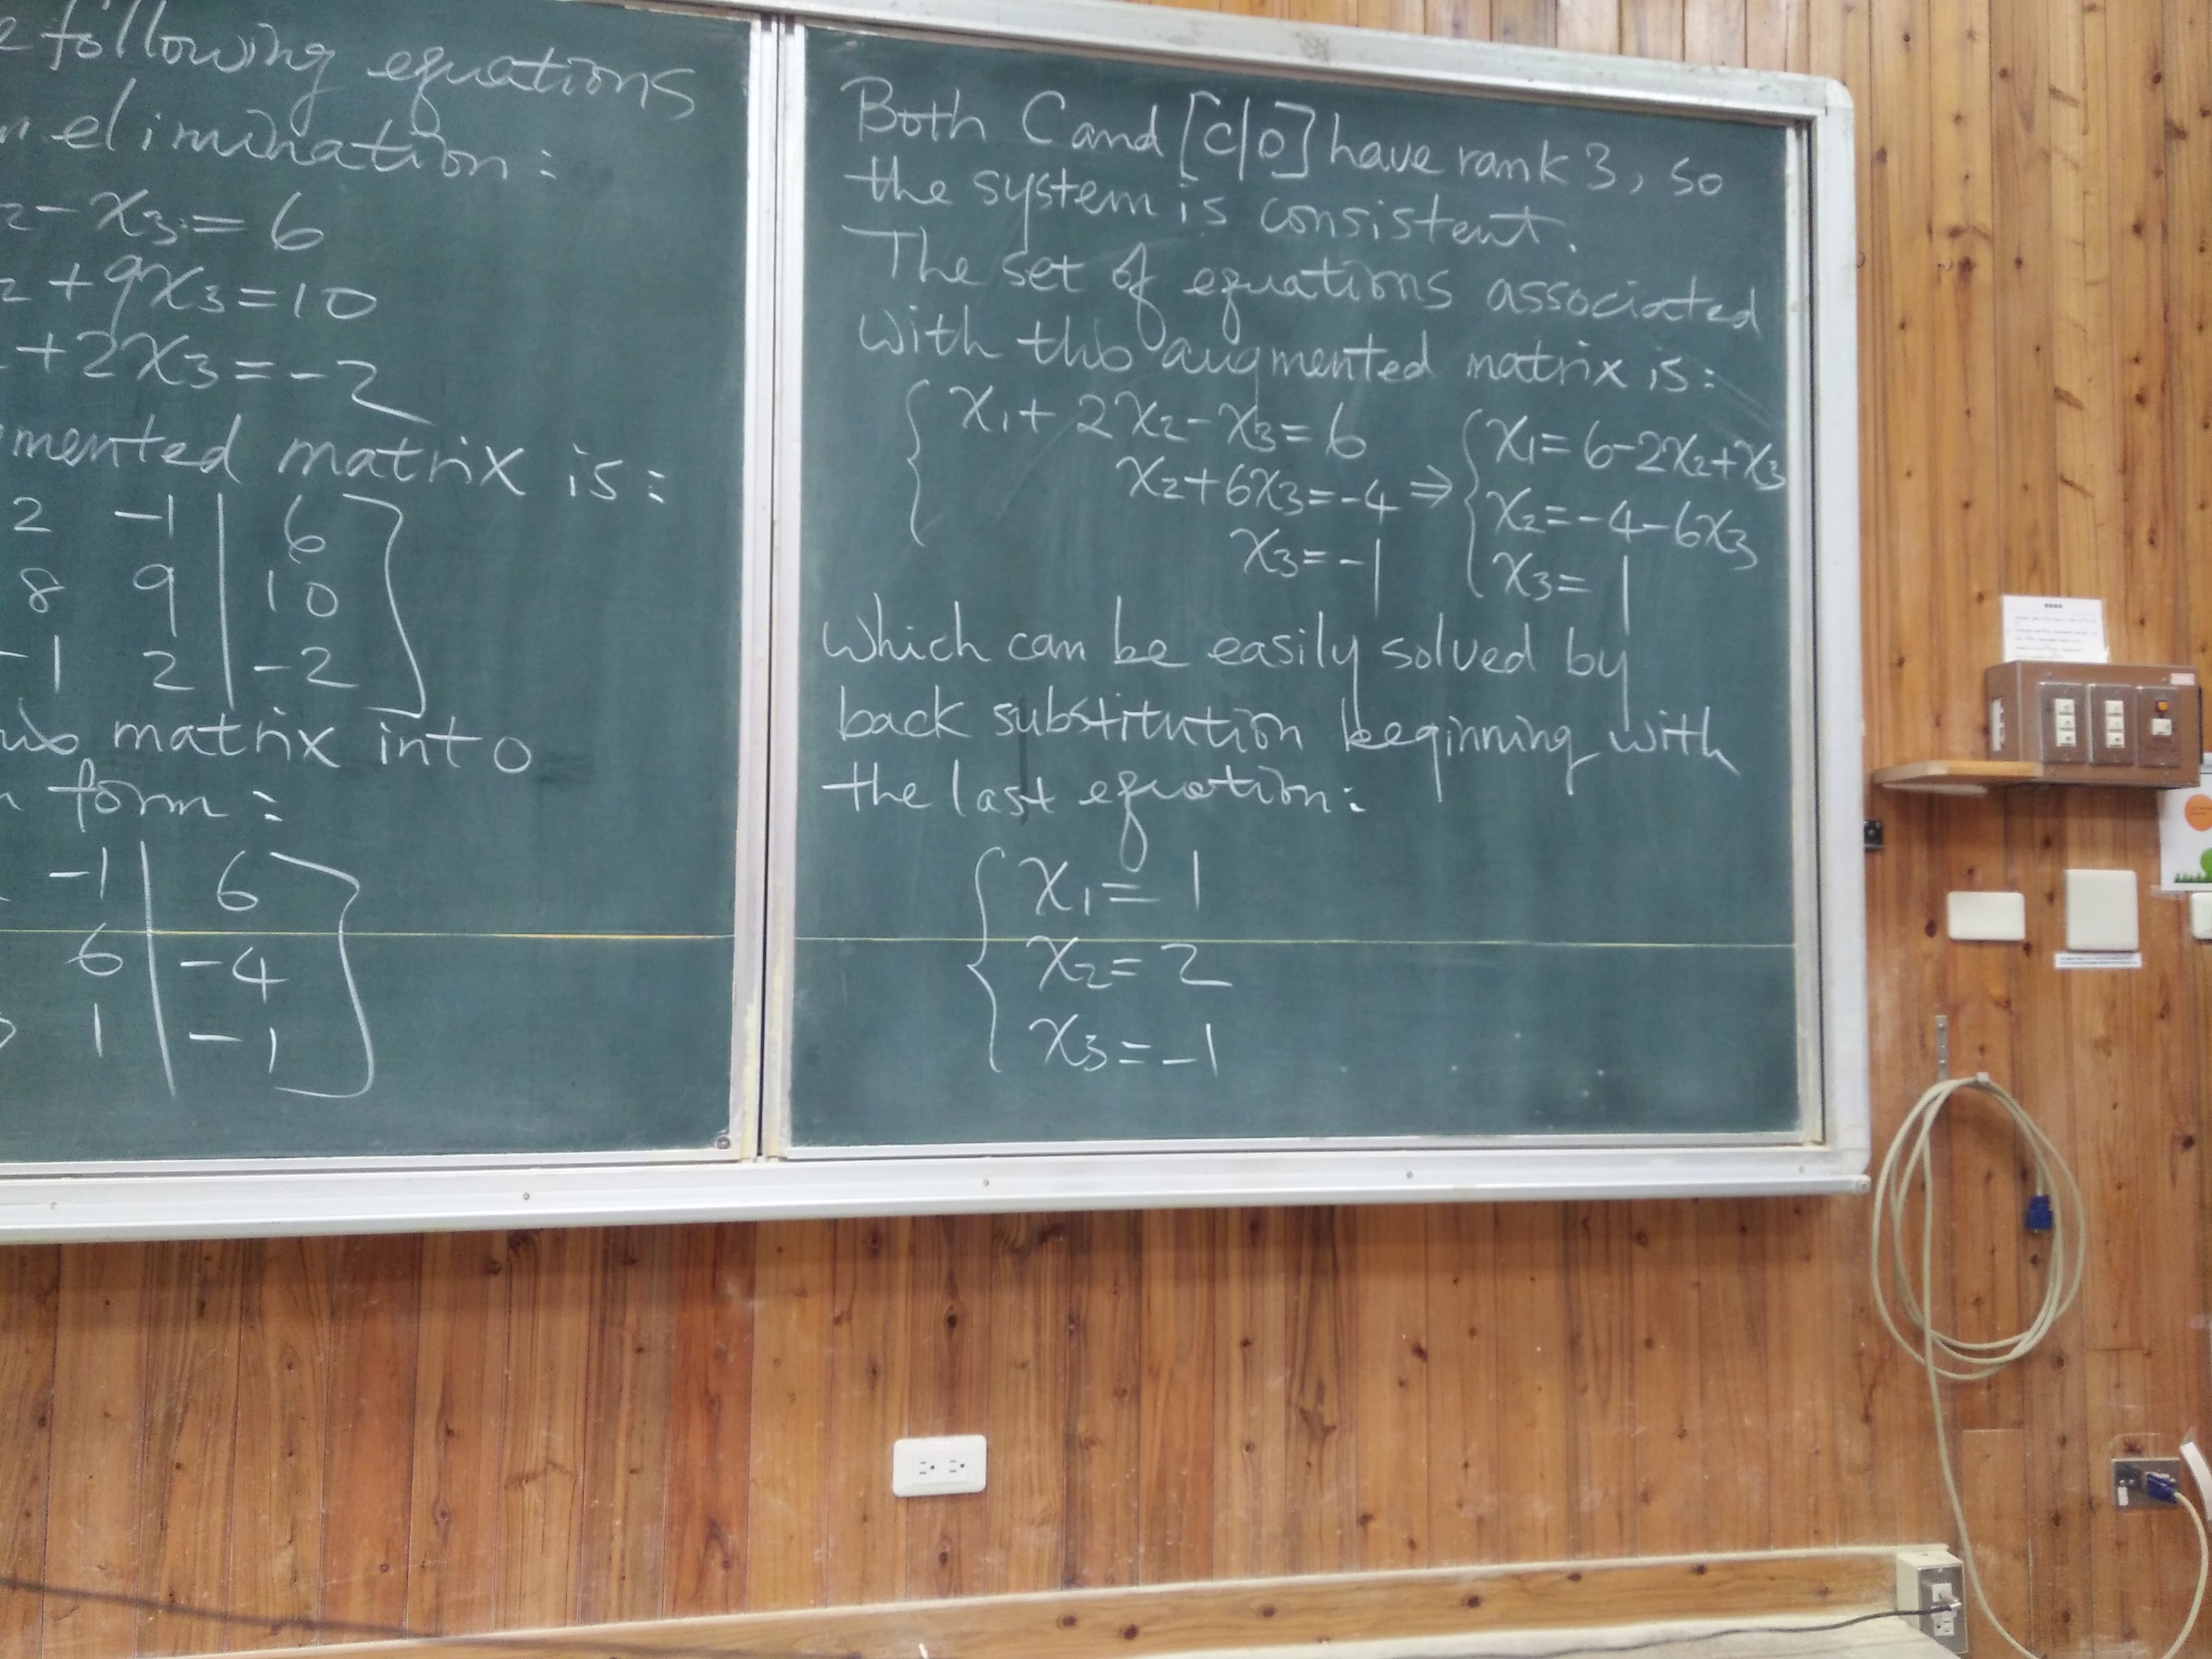 following equations
elimination:
₂-x₃=6
₂+9x₃=10
+2x₃=-2
mented matrix is:
2 -1 | 6
8 9 | 10
-1 2 | -2
matrix into
form:
-1 | 6
6 | -4
1 | -1
Both C and [C|D] have rank 3, so
the system is consistent.
The set of equations associated
with this augmented matrix is:
x₁+2x₂-x₃=6 x₁=6-2x₂+x₃
x₂+6x₃=-4 ⇒ x₂=-4-6x₃
x₃=-1 x₃= 1
which can be easily solved by
back substitution beginning with
the last equation:
x₁=1
x₂=2
x₃=-1